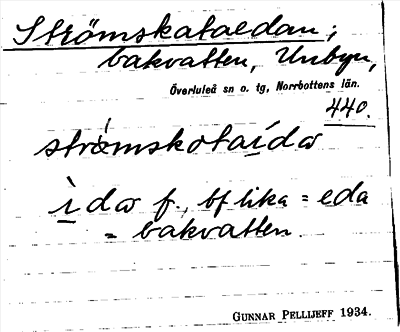 Strömskataedan;
bakvatten, Unbyn,
Överluleå sn o. tg, Norrbottens län.
440.
strömskotaída
ìda f., bf lika = eda
= bakvatten.
GUNNAR PELLIJEFF 1934.